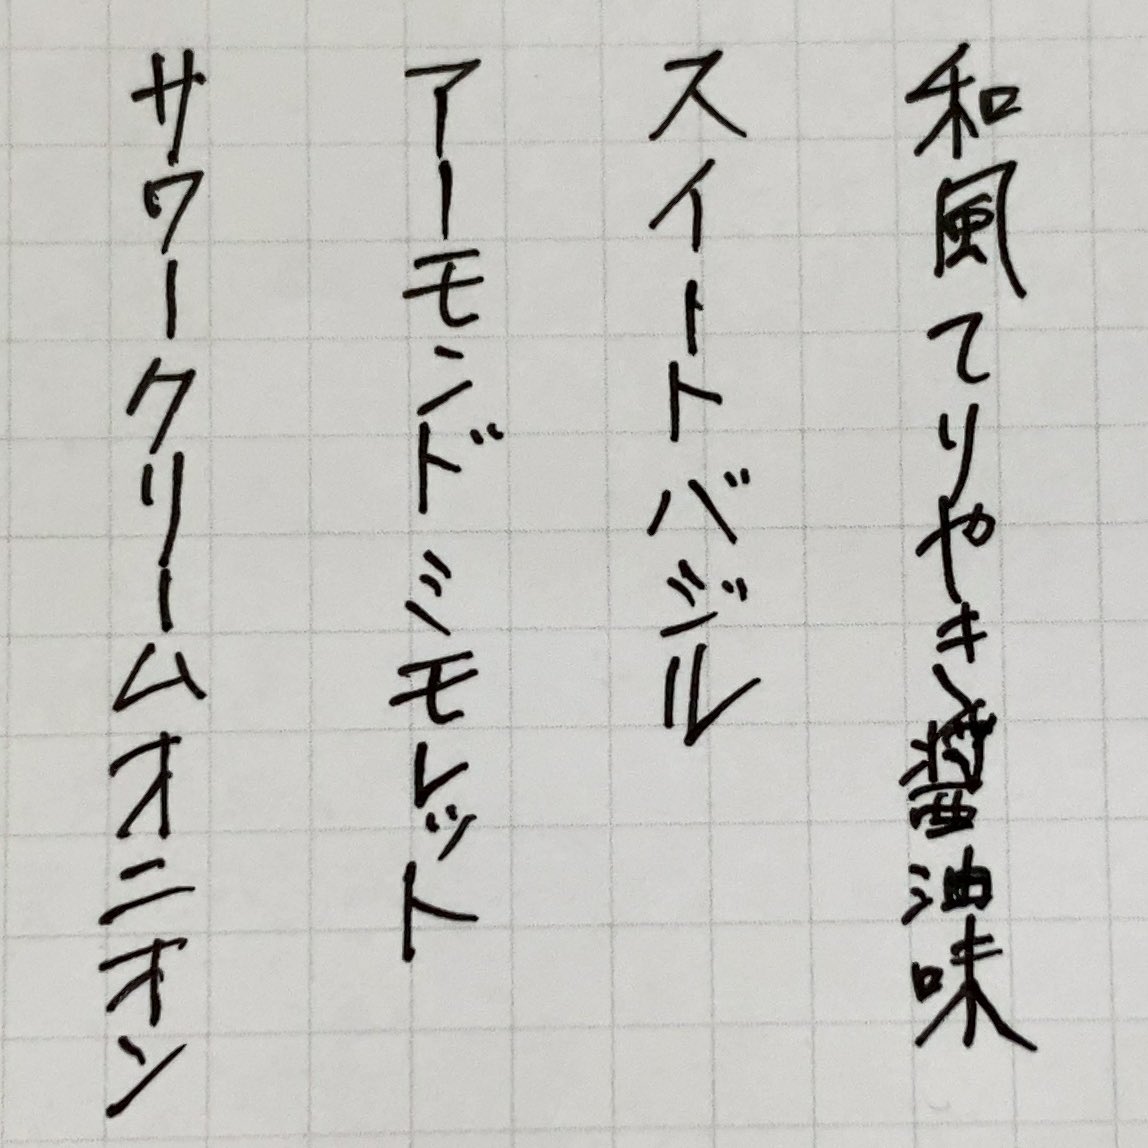 和風てりやき醤油味
スイートバジル
アーモンドミモレット
サワークリームオニオン